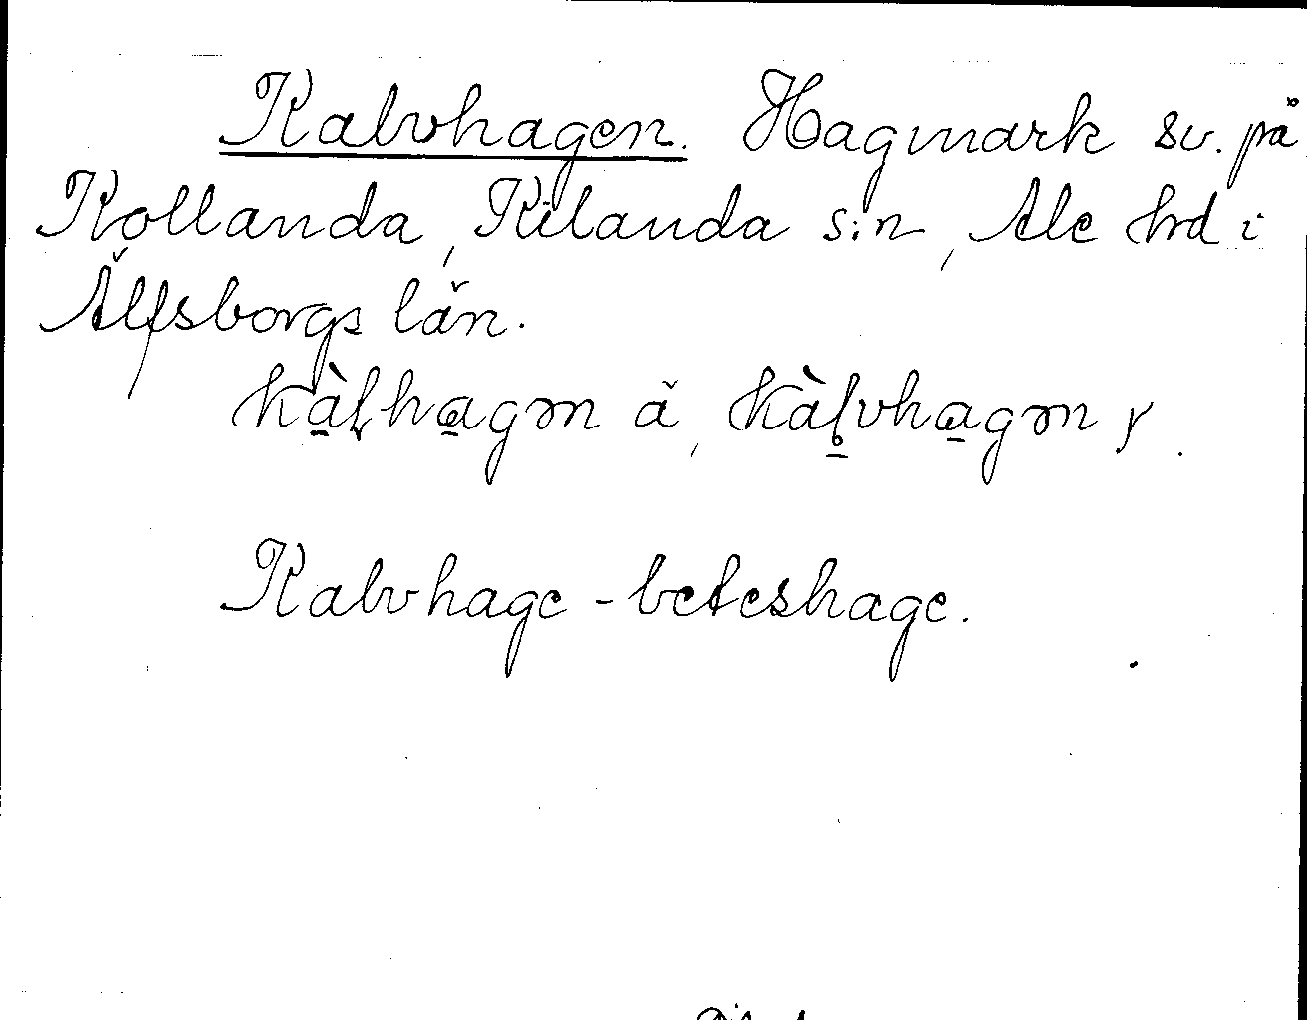 Kalvhagen. Hagmark sv. på
Kollanda, Kilanda s:n, Ale hd i
Älfsborgs län.
kàlhagən ä, kàlvhagən y.
Kalvhage - beteshage.